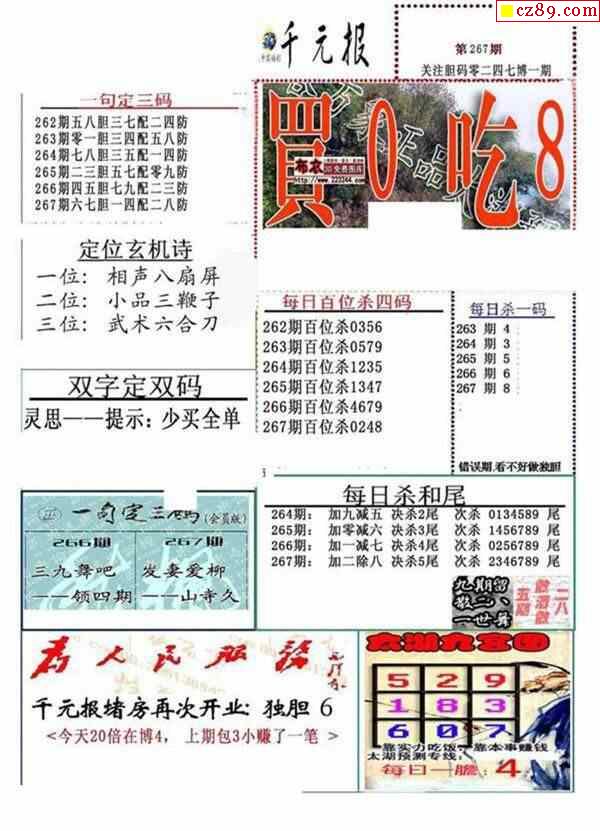 cz89.com
千元报
第267期
关注胆码零二四七博一期
一句定三码
262期五八胆三七配二四防
263期零一胆三四配五八防
264期七八胆三五配一四防
265期二三胆五七配零九防
266期四五胆七九配二三防
267期六七胆一四配二八防
買0吃8
布衣
3D免费图库
www.223344.com
定位玄机诗
一位: 相声八扇屏
二位: 小品三鞭子
三位: 武术六合刀
每日百位杀四码
262期百位杀0356
263期百位杀0579
264期百位杀1235
265期百位杀1347
266期百位杀4679
267期百位杀0248
每日杀一码
263 期 4
264 期 3
265 期 5
266 期 6
267 期 8
错误期,看不好做独胆
双字定双码
灵思——提示: 少买全单
一句定三码(会员版)
266期
三九舞吧
——领四期
267期
发妻爱柳
——山寺久
每日杀和尾
264期: 加九减五 决杀2尾 次杀 0134589 尾
265期: 加零减六 决杀3尾 次杀 1456789 尾
266期: 加一减七 决杀4尾 次杀 0256789 尾
267期: 加二除八 决杀5尾 次杀 2346789 尾
为人民服务
千元报堵房再次开业: 独胆 6
<今天20倍在博4, 上期包3小赚了一笔 >
太湖九宫图
5 2 9
1 8 3
6 0 7
靠实力吃饭, 靠本事赚钱
太湖预测专线:
每日一胆: 4